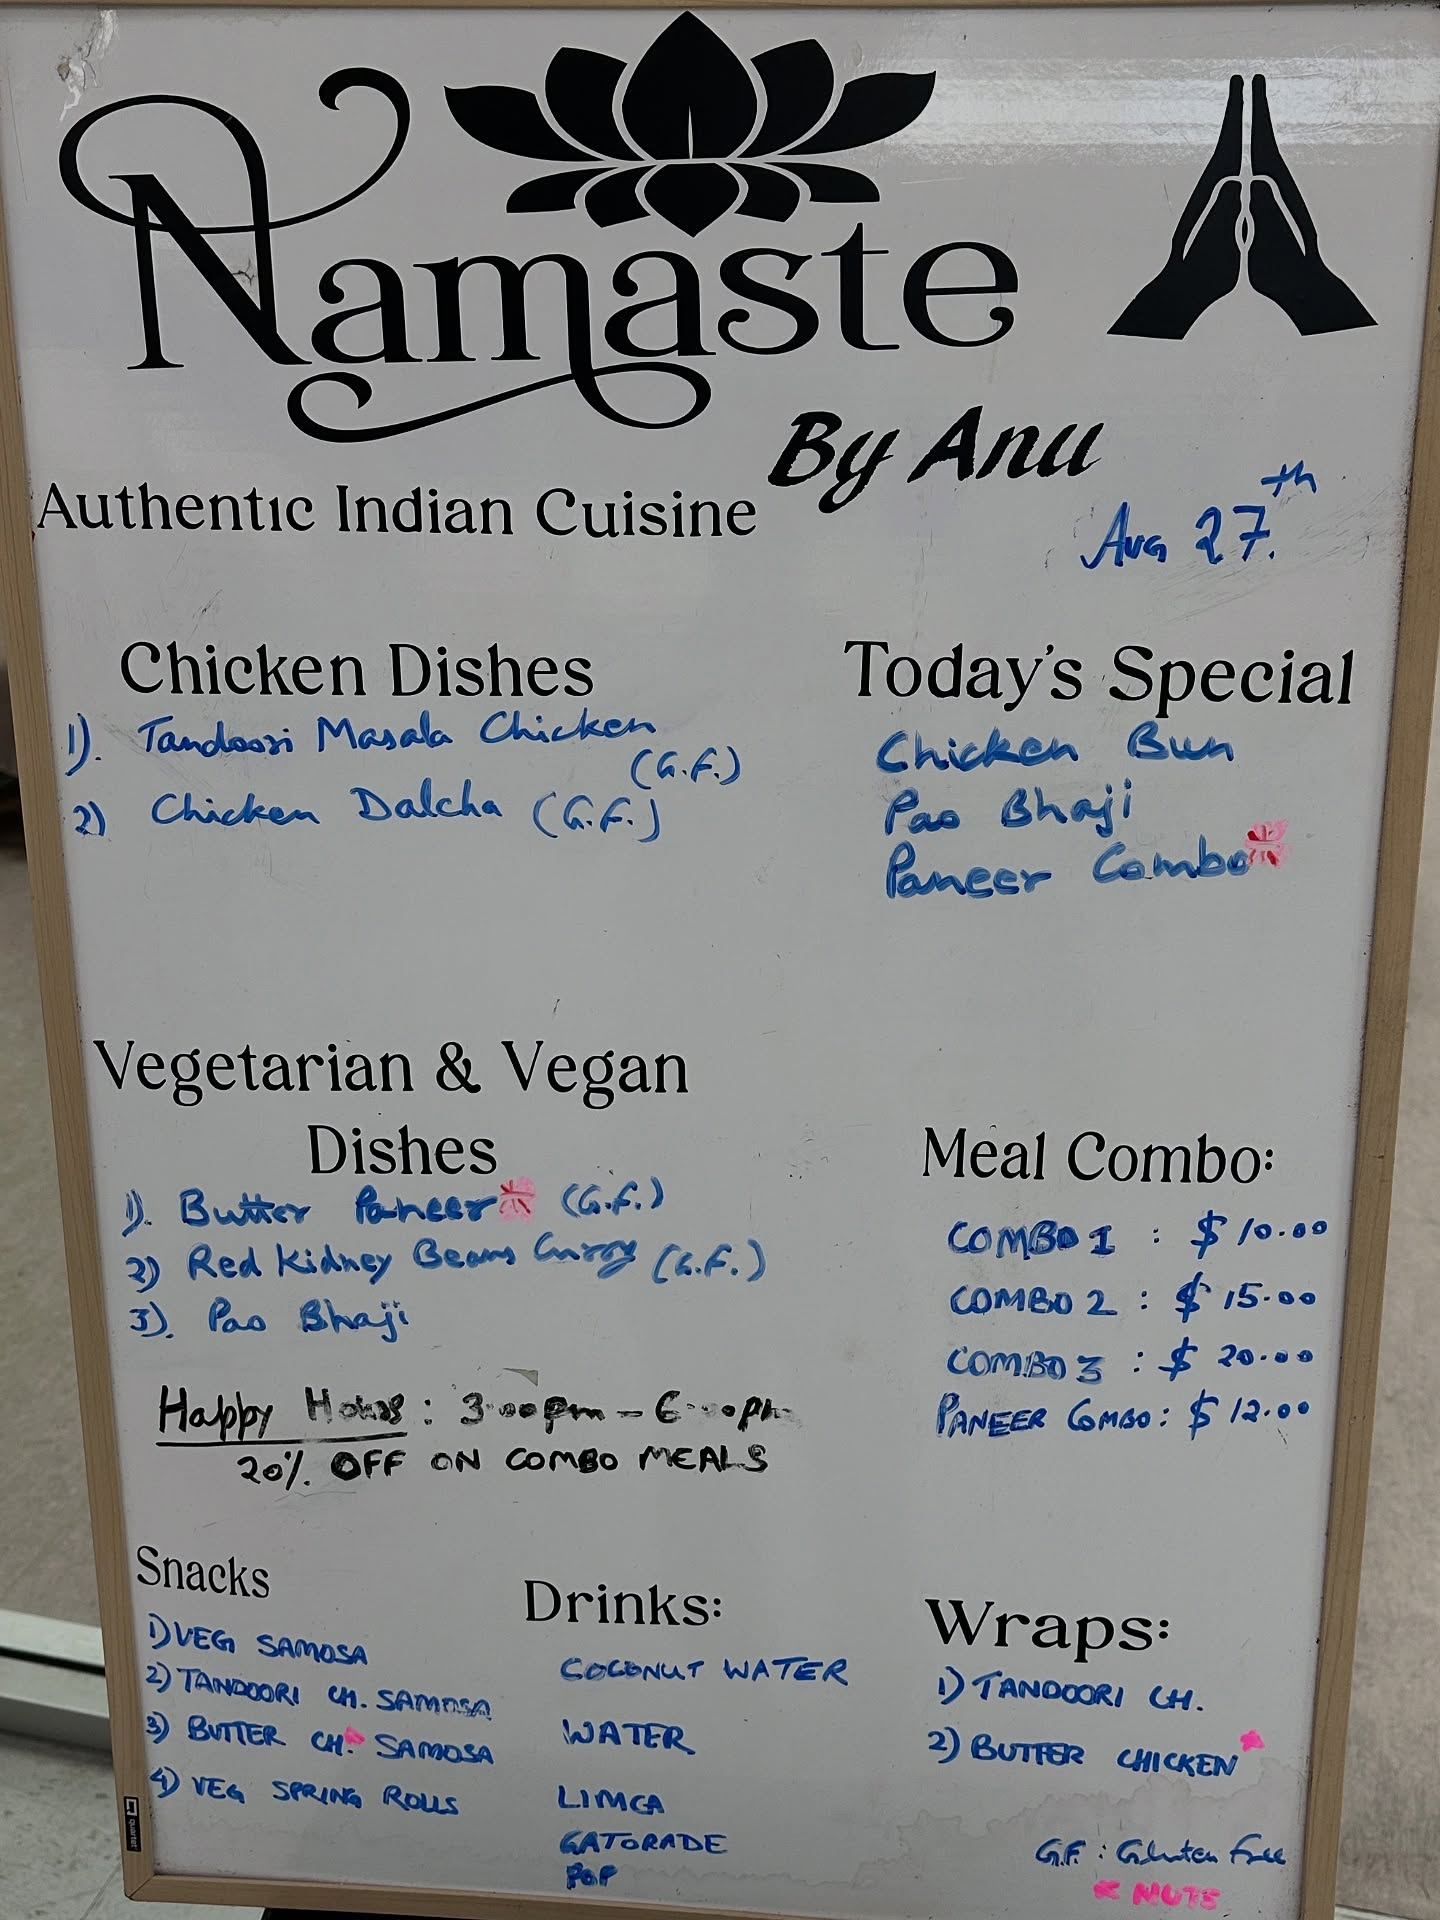 Namaste
By Anu
Authentic Indian Cuisine
Aug 27.th
Chicken Dishes
1). Tandoori Masala Chicken
(G.F.)
2) Chicken Dalcha (G.F.)
Today's Special
Chicken Bun
Pao Bhaji
Paneer Combo*
Vegetarian & Vegan
Dishes
1). Butter Paneer* (G.F.)
2) Red Kidney Beans Curry (G.F.)
3). Pao Bhaji
Happy Hours: 3:00pm - 6:00pm
20% OFF ON COMBO MEALS
Meal Combo:
COMBO 1 : $10.00
COMBO 2 : $15.00
COMBO 3 : $20.00
PANEER COMBO: $12.00
Snacks
1) VEG SAMOSA
2) TANDOORI CH. SAMOSA
3) BUTTER CH.* SAMOSA
4) VEG SPRING ROLLS
Drinks:
COCONUT WATER
WATER
LIMCA
GATORADE
POP
Wraps:
1) TANDOORI CH.
2) BUTTER CHICKEN*
G.F : Gluten Free
* NUTS
quartet